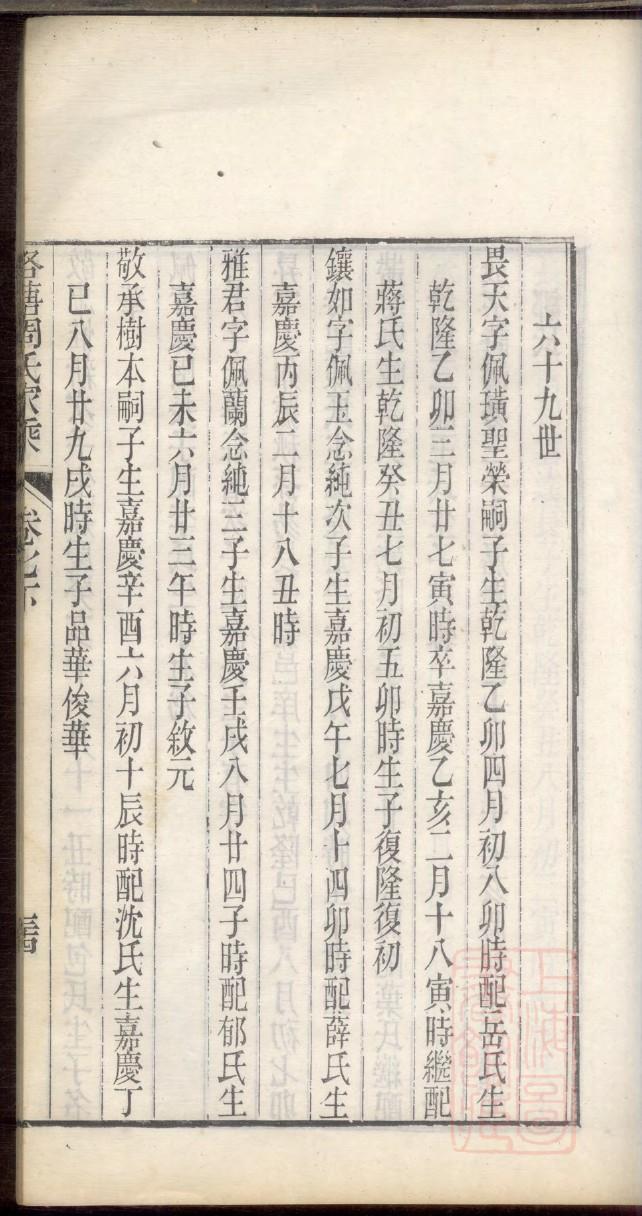 六十九世
畏天字佩璜聖榮嗣子生乾隆乙卯四月初八卯時配岳氏生
乾隆乙卯三月廿七寅時卒嘉慶乙亥二月十八寅時繼配
蔣氏生乾隆癸丑七月初五卯時生子復隆復初
鑲如字佩玉念純次子生嘉慶戊午七月十四卯時配薛氏生
嘉慶丙辰二月十八丑時
雅君字佩蘭念純三子生嘉慶壬戌八月廿四子時配郁氏生
嘉慶已未六月廿三午時生子敘元
敬承樹本嗣子生嘉慶辛酉六月初十辰時配沈氏生嘉慶丁
巳八月廿九戌時生子品華俊華
周氏家乘 卷之下